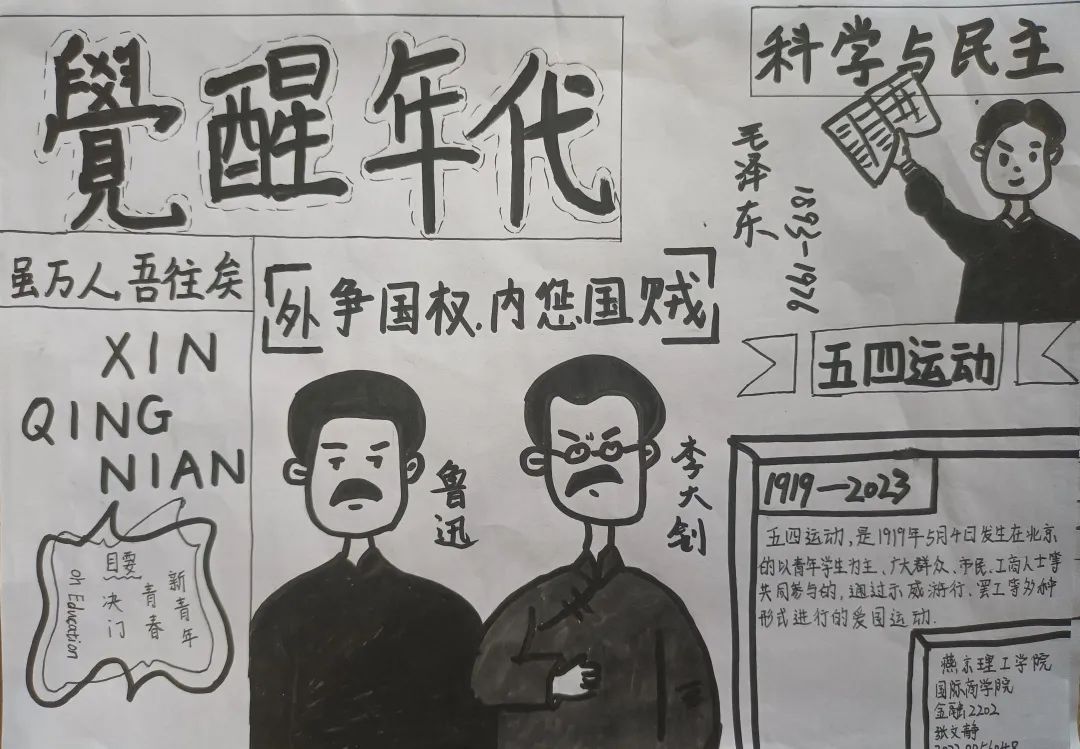 覺醒年代
科学与民主
毛泽东
1893—1976
虽万人吾往矣
外争国权.内您国贼
XIN
QING
NIAN
鲁迅
李大钊
五四运动
新青年
青春
目要
决门
oh Education
1919—2023
五四运动,是1919年5月4日发生在北京
的以青年学生为主、广大群众、市民、工商人士等
共同参与的,通过示威游行、罢工等多种
形式进行的爱国运动.
燕京理工学院
国际商学院
金融2202
张文静